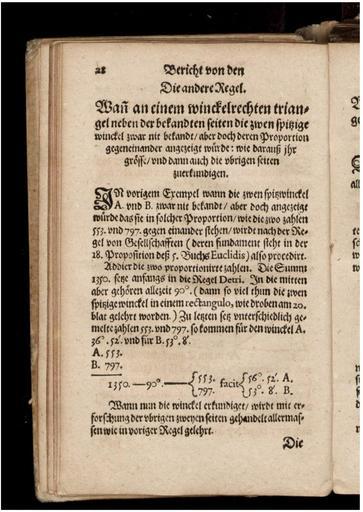 28 Bericht von den
Die andere Regel.
Wañ an einem winckelrechten trian-
gel neben der bekandten seiten die zwen spitzige
winckel zwar nit bekandt / aber doch deren Proportion
gegeneinander angezeigt würde: wie darauß jhr
grösse / vnd dann auch die vbrigen seiten
zuerkundigen.
IN vorigem Exempel wann die zwen spitzwinckel
A. vnd B. zwar nit bekandt / aber doch angezeigt
würde das sie in solcher Proportion / wie die zwo zahlen
553. vnd 797. gegen einander stehen / wirdt nach der Re-
gel von Gesellschafften (deren fundament stehet in der
18. Proposition deß 5. Buchs Euclidis) also procedirt.
Addier die zwo proportionirte zahlen. Die Summ
1350. setze anfangs in die Regel Detri. In die mitten
aber gehören allezeit 90°. (dann so viel thun die zwen
spitzige winckel in einem rectangulo, wie droben am 20.
blat gelehrt worden) Zu letzten setz vnterschiedlich ge-
melte zahlen 553. vnd 797. so kommen für den winckel A.
36°. 52′. vnd für B. 53°. 8′.
A. 553.
B. 797.
1350. — 90°. — { 553. facit { 36°. 52′. A.
797. 53°. 8′. B.
Wann nun die winckel erkundiget / wirdt mit er-
forschung der vbrigen zweyen seiten gehandelt allermas-
sen wie in voriger Regel gelehrt.
Die